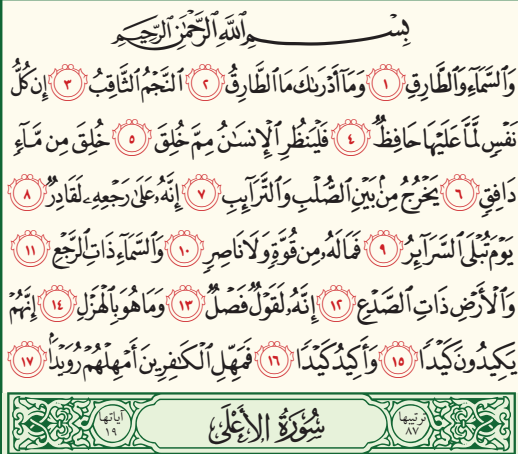 بِسْمِ ٱللَّهِ ٱلرَّحْمَٰنِ ٱلرَّحِيمِ
وَٱلسَّمَآءِ وَٱلطَّارِقِ ١ وَمَآ أَدْرَىٰكَ مَا ٱلطَّارِقُ ٢ ٱلنَّجْمُ ٱلثَّاقِبُ ٣ إِن كُلُّ
نَفْسٍ لَّمَّا عَلَيْهَا حَافِظٌ ٤ فَلْيَنظُرِ ٱلْإِنسَٰنُ مِمَّ خُلِقَ ٥ خُلِقَ مِن مَّآءٍ
دَافِقٍ ٦ يَخْرُجُ مِنۢ بَيْنِ ٱلصُّلْبِ وَٱلتَّرَآئِبِ ٧ إِنَّهُۥ عَلَىٰ رَجْعِهِۦ لَقَادِرٌ ٨
يَوْمَ تُبْلَى ٱلسَّرَآئِرُ ٩ فَمَا لَهُۥ مِن قُوَّةٍ وَلَا نَاصِرٍ ١٠ وَٱلسَّمَآءِ ذَاتِ ٱلرَّجْعِ ١١
وَٱلْأَرْضِ ذَاتِ ٱلصَّدْعِ ١٢ إِنَّهُۥ لَقَوْلٌ فَصْلٌ ١٣ وَمَا هُوَ بِٱلْهَزْلِ ١٤ إِنَّهُمْ
يَكِيدُونَ كَيْدًا ١٥ وَأَكِيدُ كَيْدًا ١٦ فَمَهِّلِ ٱلْكَٰفِرِينَ أَمْهِلْهُمْ رُوَيْدًۢا ١٧
ترتيبها ٨٧ سُورَةُ الأَعْلَى آياتها ١٩